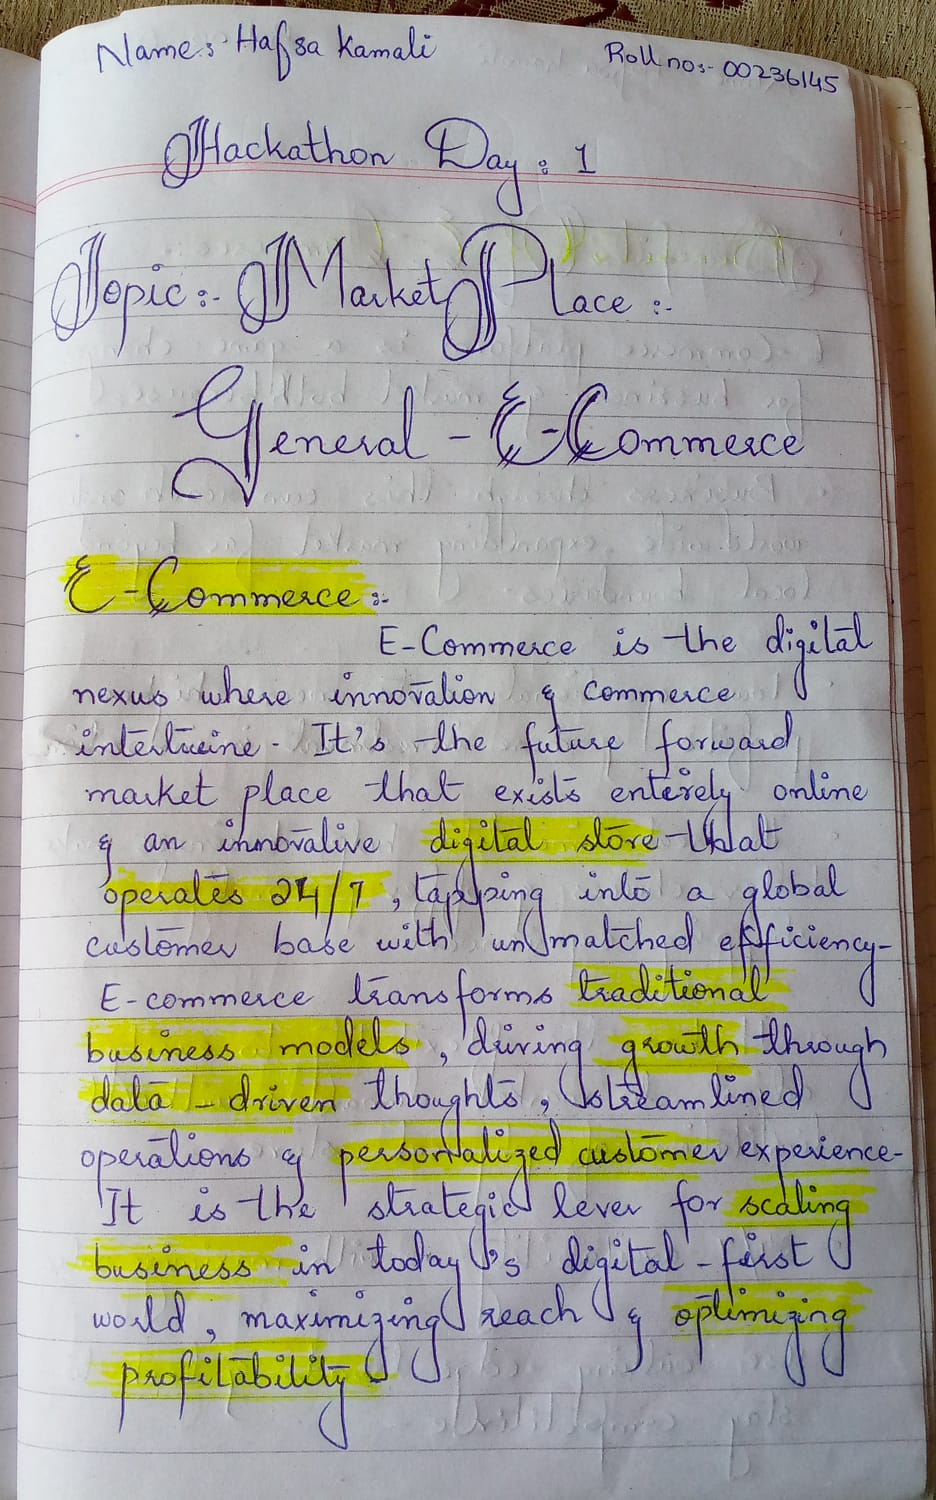 Name:- Hafsa Kamali Roll no:- 00236145
Hackathon Day: 1
Topic:- Market Place:-
General - E-Commerce
E-Commerce:-
E-Commerce is the digital
nexus where innovation & commerce
intertwine. It's the future forward
market place that exists entirely online
& an innovative digital store that
operates 24/7, tapping into a global
customer base with unmatched efficiency.
E-commerce transforms traditional
business models, driving growth through
data-driven thoughts, streamlined
operations & personalized customer experience.
It is the strategic lever for scaling
business in today's digital-first
world, maximizing reach & optimizing
profitability